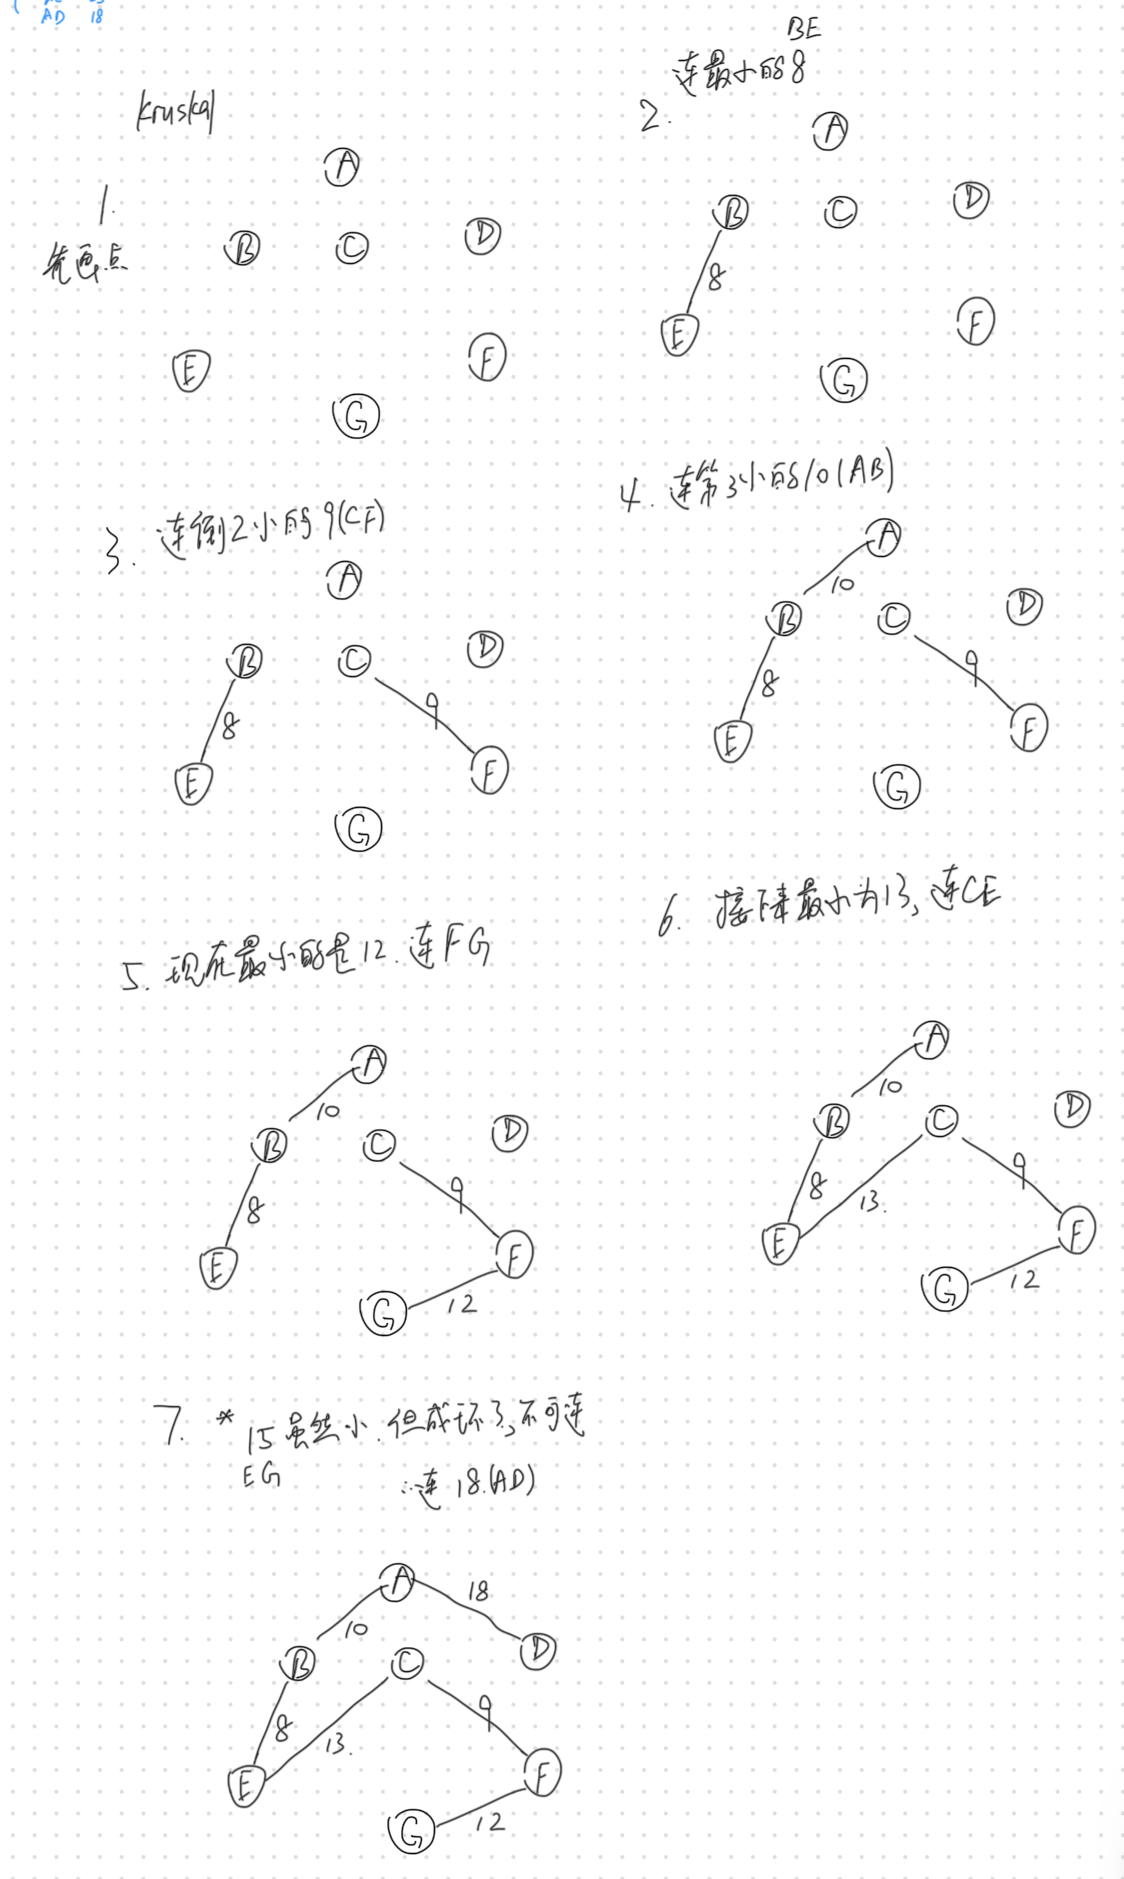 AD 18
Kruskal
1.
先画点
A
B C D
E F
G
BE
2. 连最小的8
A
B C D
8
E F
G
3. 连倒2小的9(CF)
A
B C D
8 9
E F
G
4. 连第3小的10(AB)
A
10
B C D
8 9
E F
G
5. 现在最小的是12. 连FG
A
10
B C D
8 9
E F
G 12
6. 接下来最小为13, 连CE
A
10
B C D
8 13. 9
E F
G 12
7. * 15虽然小.但成环了,不可连
EG ∴连18.(AD)
A 18
10
B C D
8 13. 9
E F
G 12